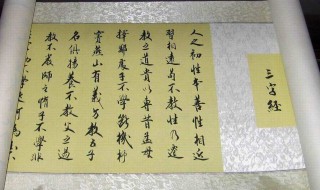 三字經
人之初性本善性相近
習相遠苟不教性乃遷
教之道貴以專昔孟母
擇鄰處子不學斷機杼
竇燕山有義方教五子
名俱揚養不教父之過
教不嚴師之惰子不學非